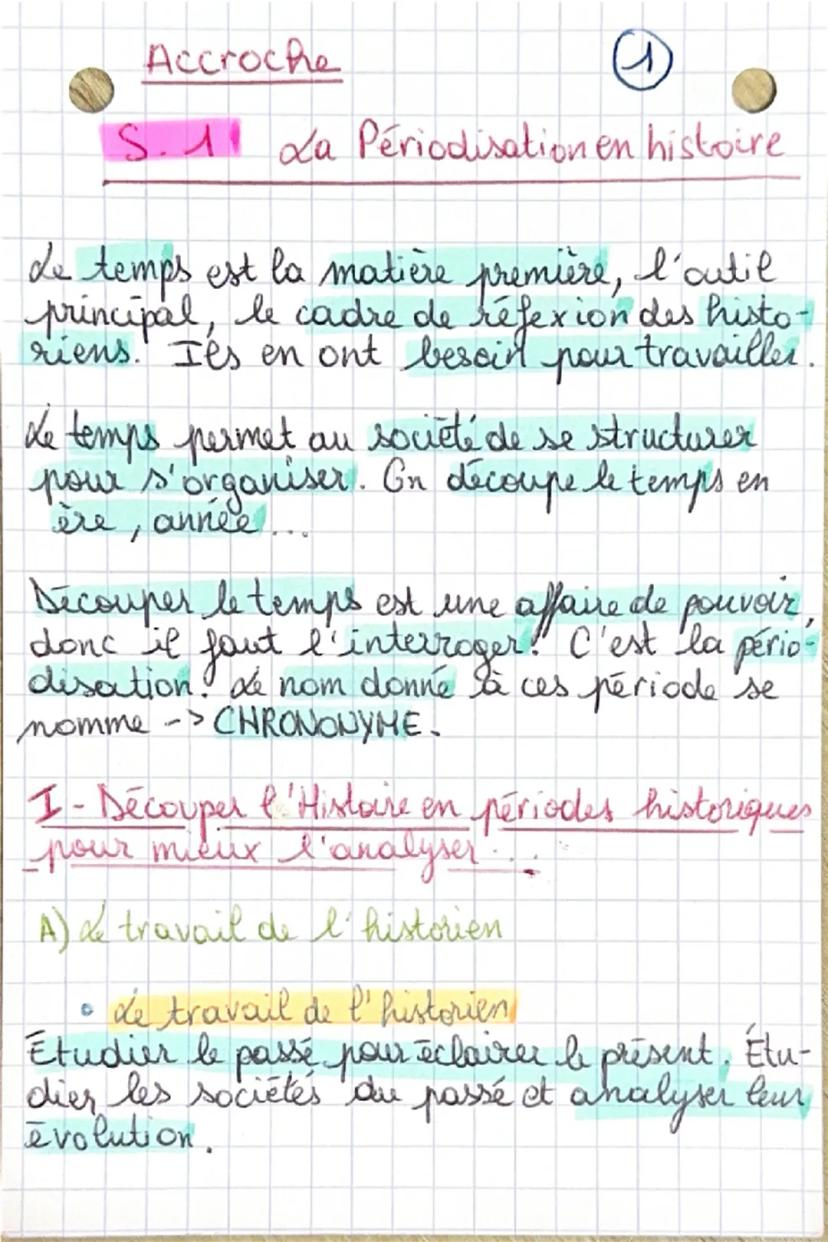 Accroche
1
S. 1 La Périodisation en histoire
Le temps est la matière première, l'outil
principal, le cadre de réfexion des histo-
riens. Ils en ont besoin pour travailler.
Le temps permet au société de se structurer
pour s'organiser. On découpe le temps en
ère, année...
Découper le temps est une affaire de pouvoir,
donc il faut l'interroger. C'est la pério-
disation. Le nom donné à ces période se
nomme -> CHRONONYME.
I - Découper l'Histoire en périodes historiques
pour mieux l'analyser...
A) Le travail de l'historien
• Le travail de l'historien
Étudier le passé pour éclairer le présent. Étu-
dier les sociétés du passé et analyser leur
évolution.